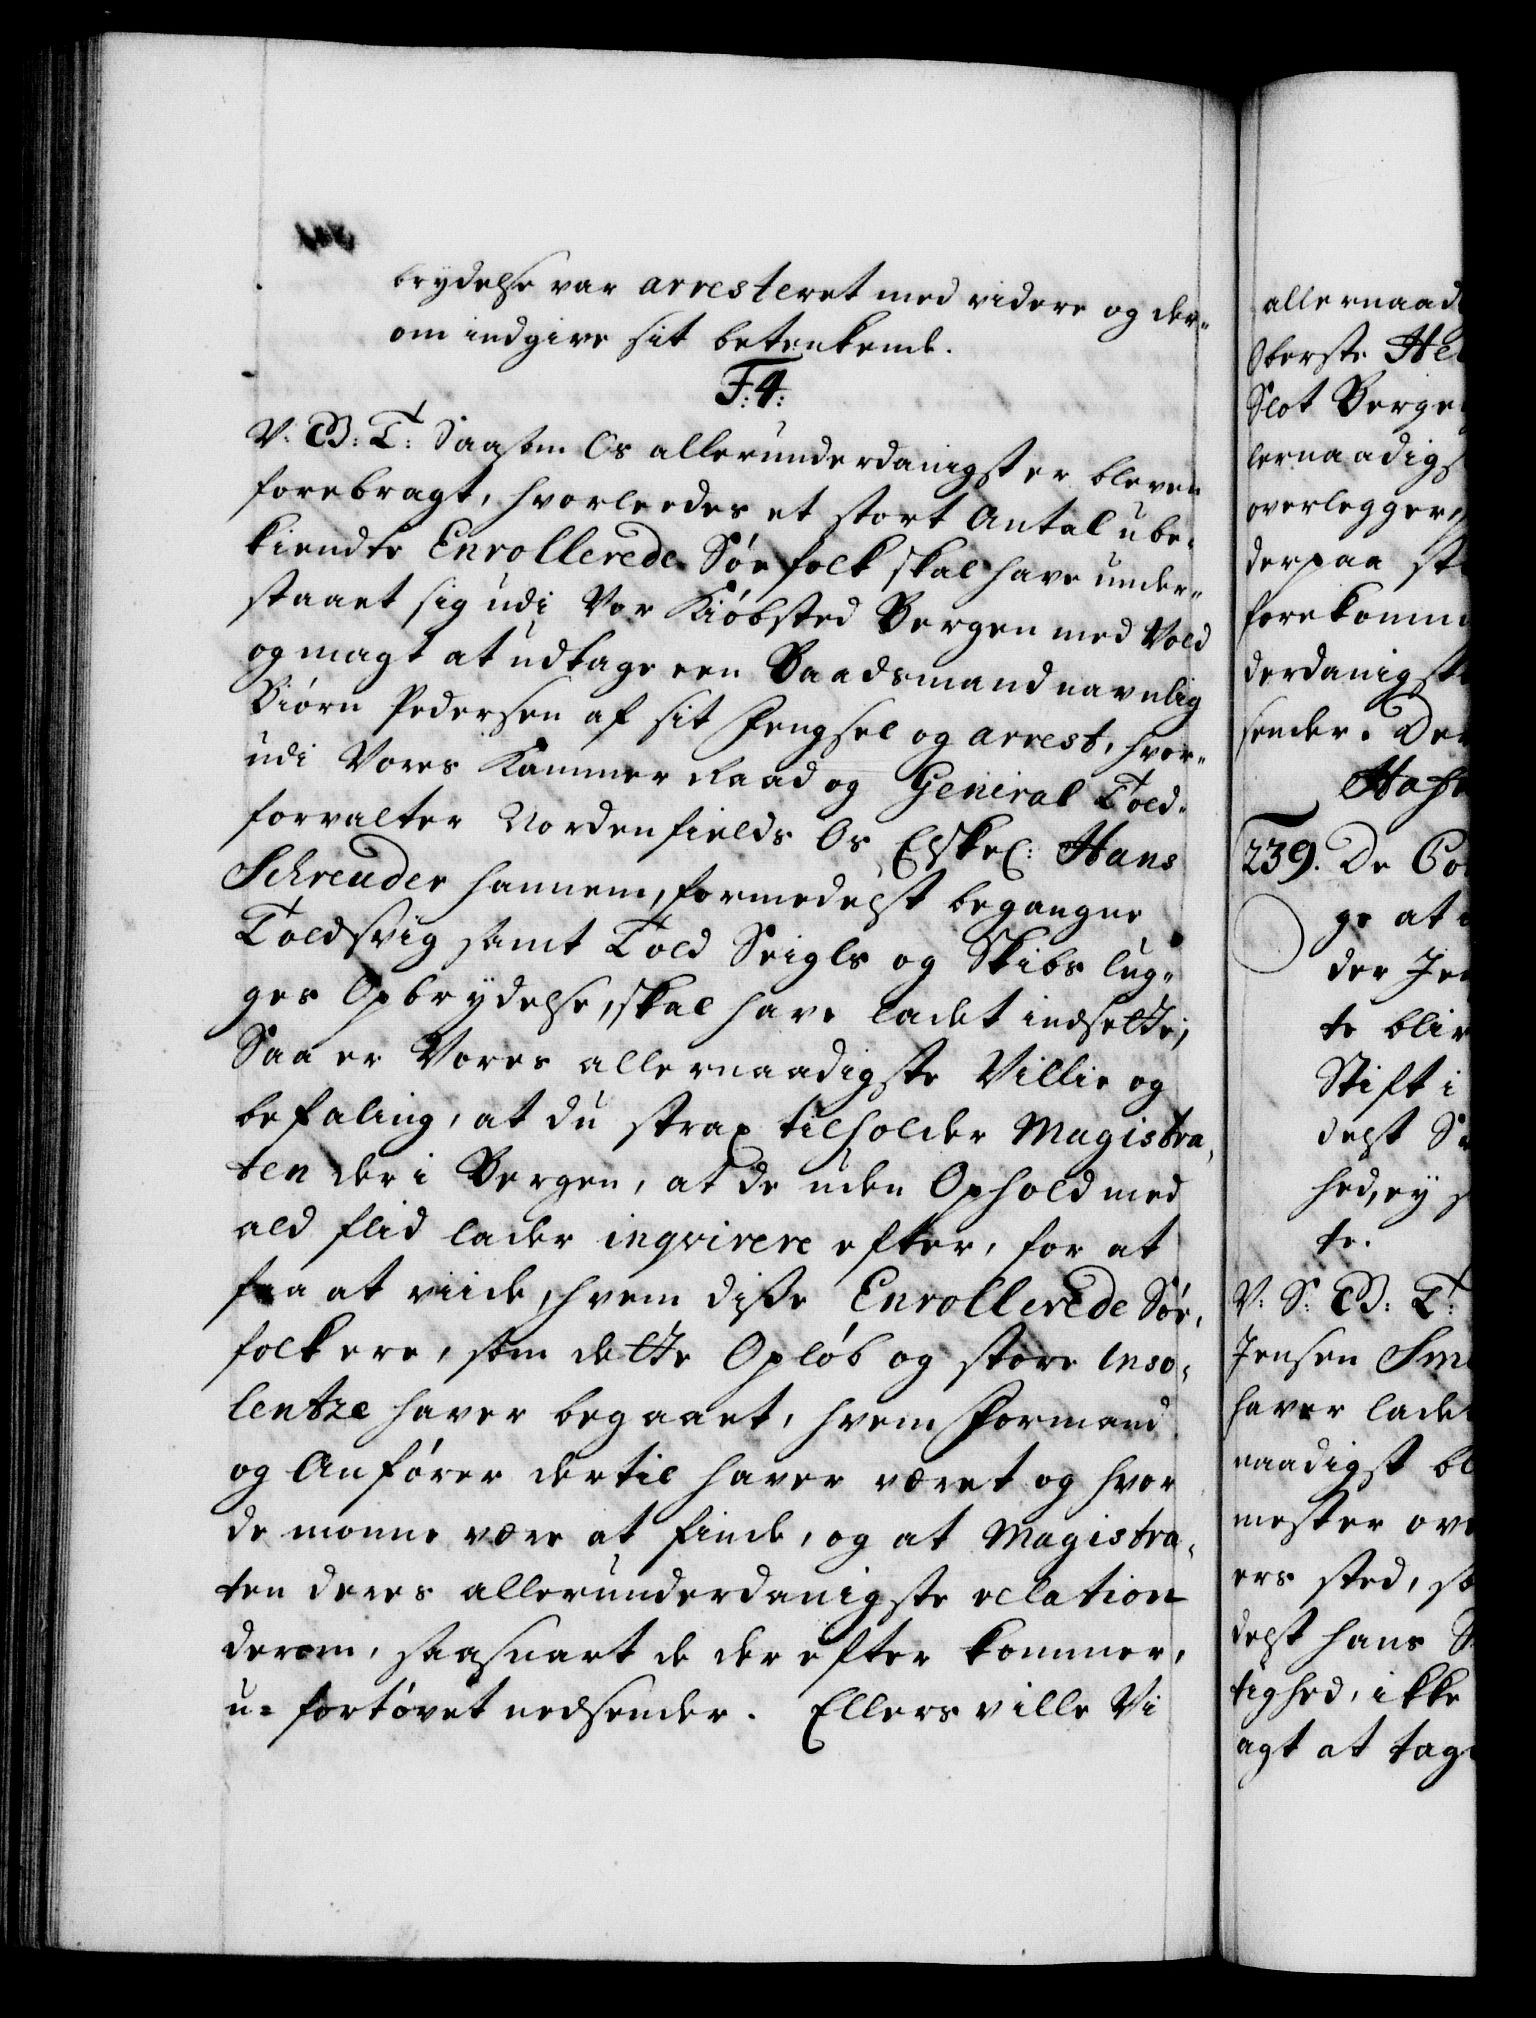 brydelse var arresteret med videre og der¬
om indgive sit betenkende.
F: 4:
V: G: T: Saasom Os allerunderdanigst er bleven
forebragt, hvorleedes et stort Antal ube¬
kiendte Enrollerede Søefolk skal have under¬
staaet sig udi Vor Kiøbsted Bergen med Vold
og magt at udtage een Baadsmand navnlig
Biørn Pedersen af sit Fengsel og arrest, hvor¬
udi Vores Kammer Raad og General Told¬
forvalter Nordenfields Os Elskel: Hans
Schreuder hannem, formedelst begangne
Toldsvig samt Told Seigls og Skibs lug¬
ges Opbrydelse, skal have ladet indsette;
Saa er Vores allernaadigste Villie og
befaling, at du strax tilholder Magistra¬
ten der i Bergen, at de uden Ophold med
ald flid lader inqvirere efter, for at
faa at viide, hvem disse Enrollerede Søe¬
folk ere, som dette Opløb og store Inso¬
lentze haver begaaet, hvem Formand
og Anfører dertil haver været og hvor
de monne være at finde, og at Magistra¬
ten deres allerunderdanigste relation
derom, saasnart de der efter kommer,
u= fortøvet nedsender. Ellers ville Vi
allernaad
Oberste He
Slot Berge
lernaadigs
overlegger
derpaa st
forekomm
derdanigst
sender. De
Hafn
239. De Co
ge at
der Je
te bliv
Stift i
delst S
hed, ey s
te.
V: S: G: T:
Jensen Sm
haver lade
naadigst bl
mester ov
ers sted, so
delst hans S
tighed, ikke
agt at tag